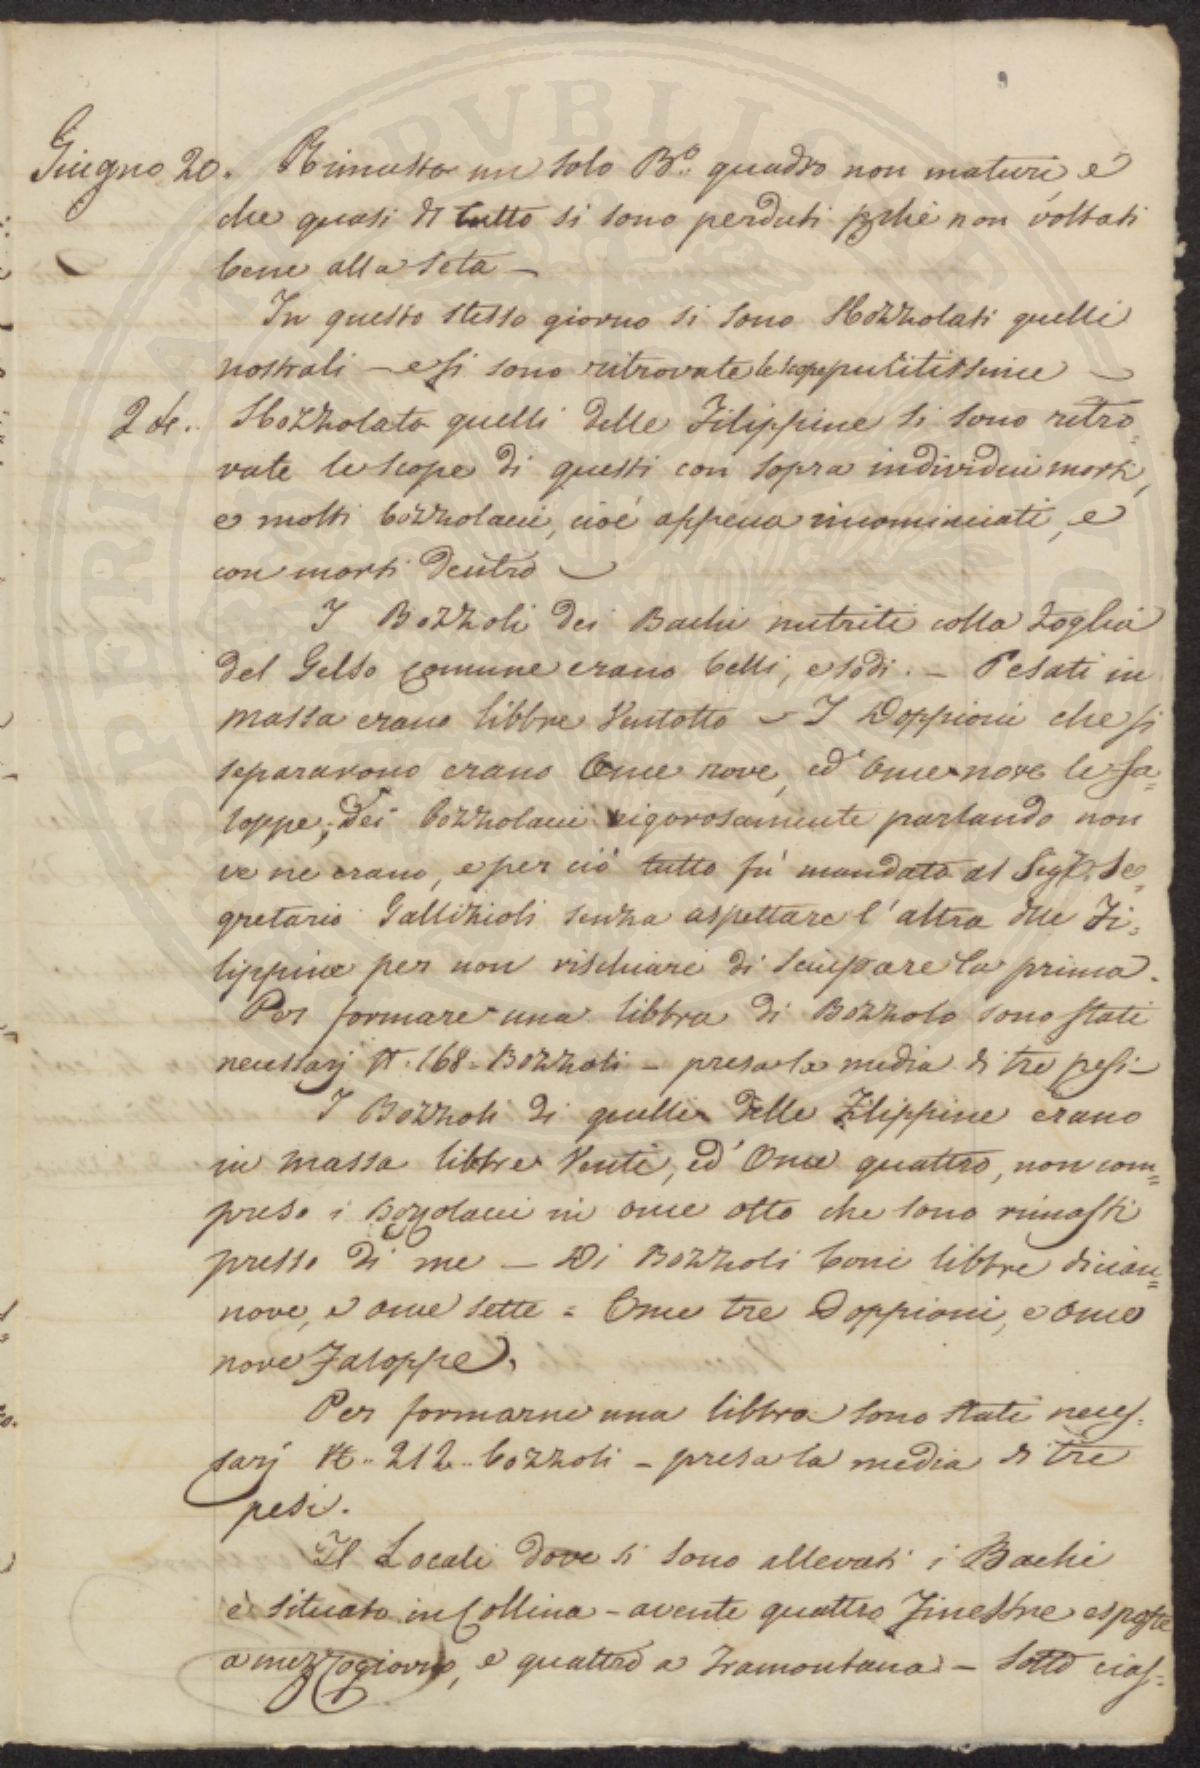 Giugno 20. Rimasto un solo B.o quadro non maturi, e
che quasi di tutto si sono perduti pchè non voltati
bene alla seta –
In questo stesso giorno si sono Sbozzolati quelli
nostrali – e si sono ritrovate le scope pulitissime –
Sbozzolato quelli delle Filippine si sono ritro=
vate le scope di questi con sopra individui morti,
e molti bozzolacci, cioè appena incominciati, e
con morti dentro –
I Bozzoli dei Bachi nutriti colla Foglia
del Gelso comune erano belli, e sodi. – Pesati in
massa erano libbre Ventotto – I Doppioni che si
separarono erano Once nove, ed Once nove le fa=
loppe; Dei bozzolacci rigorosamente parlando non
ve ne erano, e per ciò tutto fù mandato al Sigr. Se=
gretario Gallizioli senza aspettare l'altra dlle Fi=
lippine per non rischiare di sciupare la prima.
Per formare una libbra di Bozzolo sono stati
necessarj N. 168. Bozzoli – presa la media di tre pesi –
I Bozzoli di quelli delle Filippine erano
in massa libbre Venti, ed Once quattro, non com=
preso i Bozzolacci in once otto che sono rimasti
presso di me – Di Bozzoli boni libbre dician=
nove, e once sette = Once tre Doppioni, e once
nove Faloppe.
Per formarne una libbra sono stati neces=
sarj N.. 212.. bozzoli – presa la media di tre
pesi.
Il Locali dove si sono allevati i Bachi
è situato in Collina – avente quattro Finestre esposte
a mezzogiorno, e quattro a Tramontana – Sotto cias=